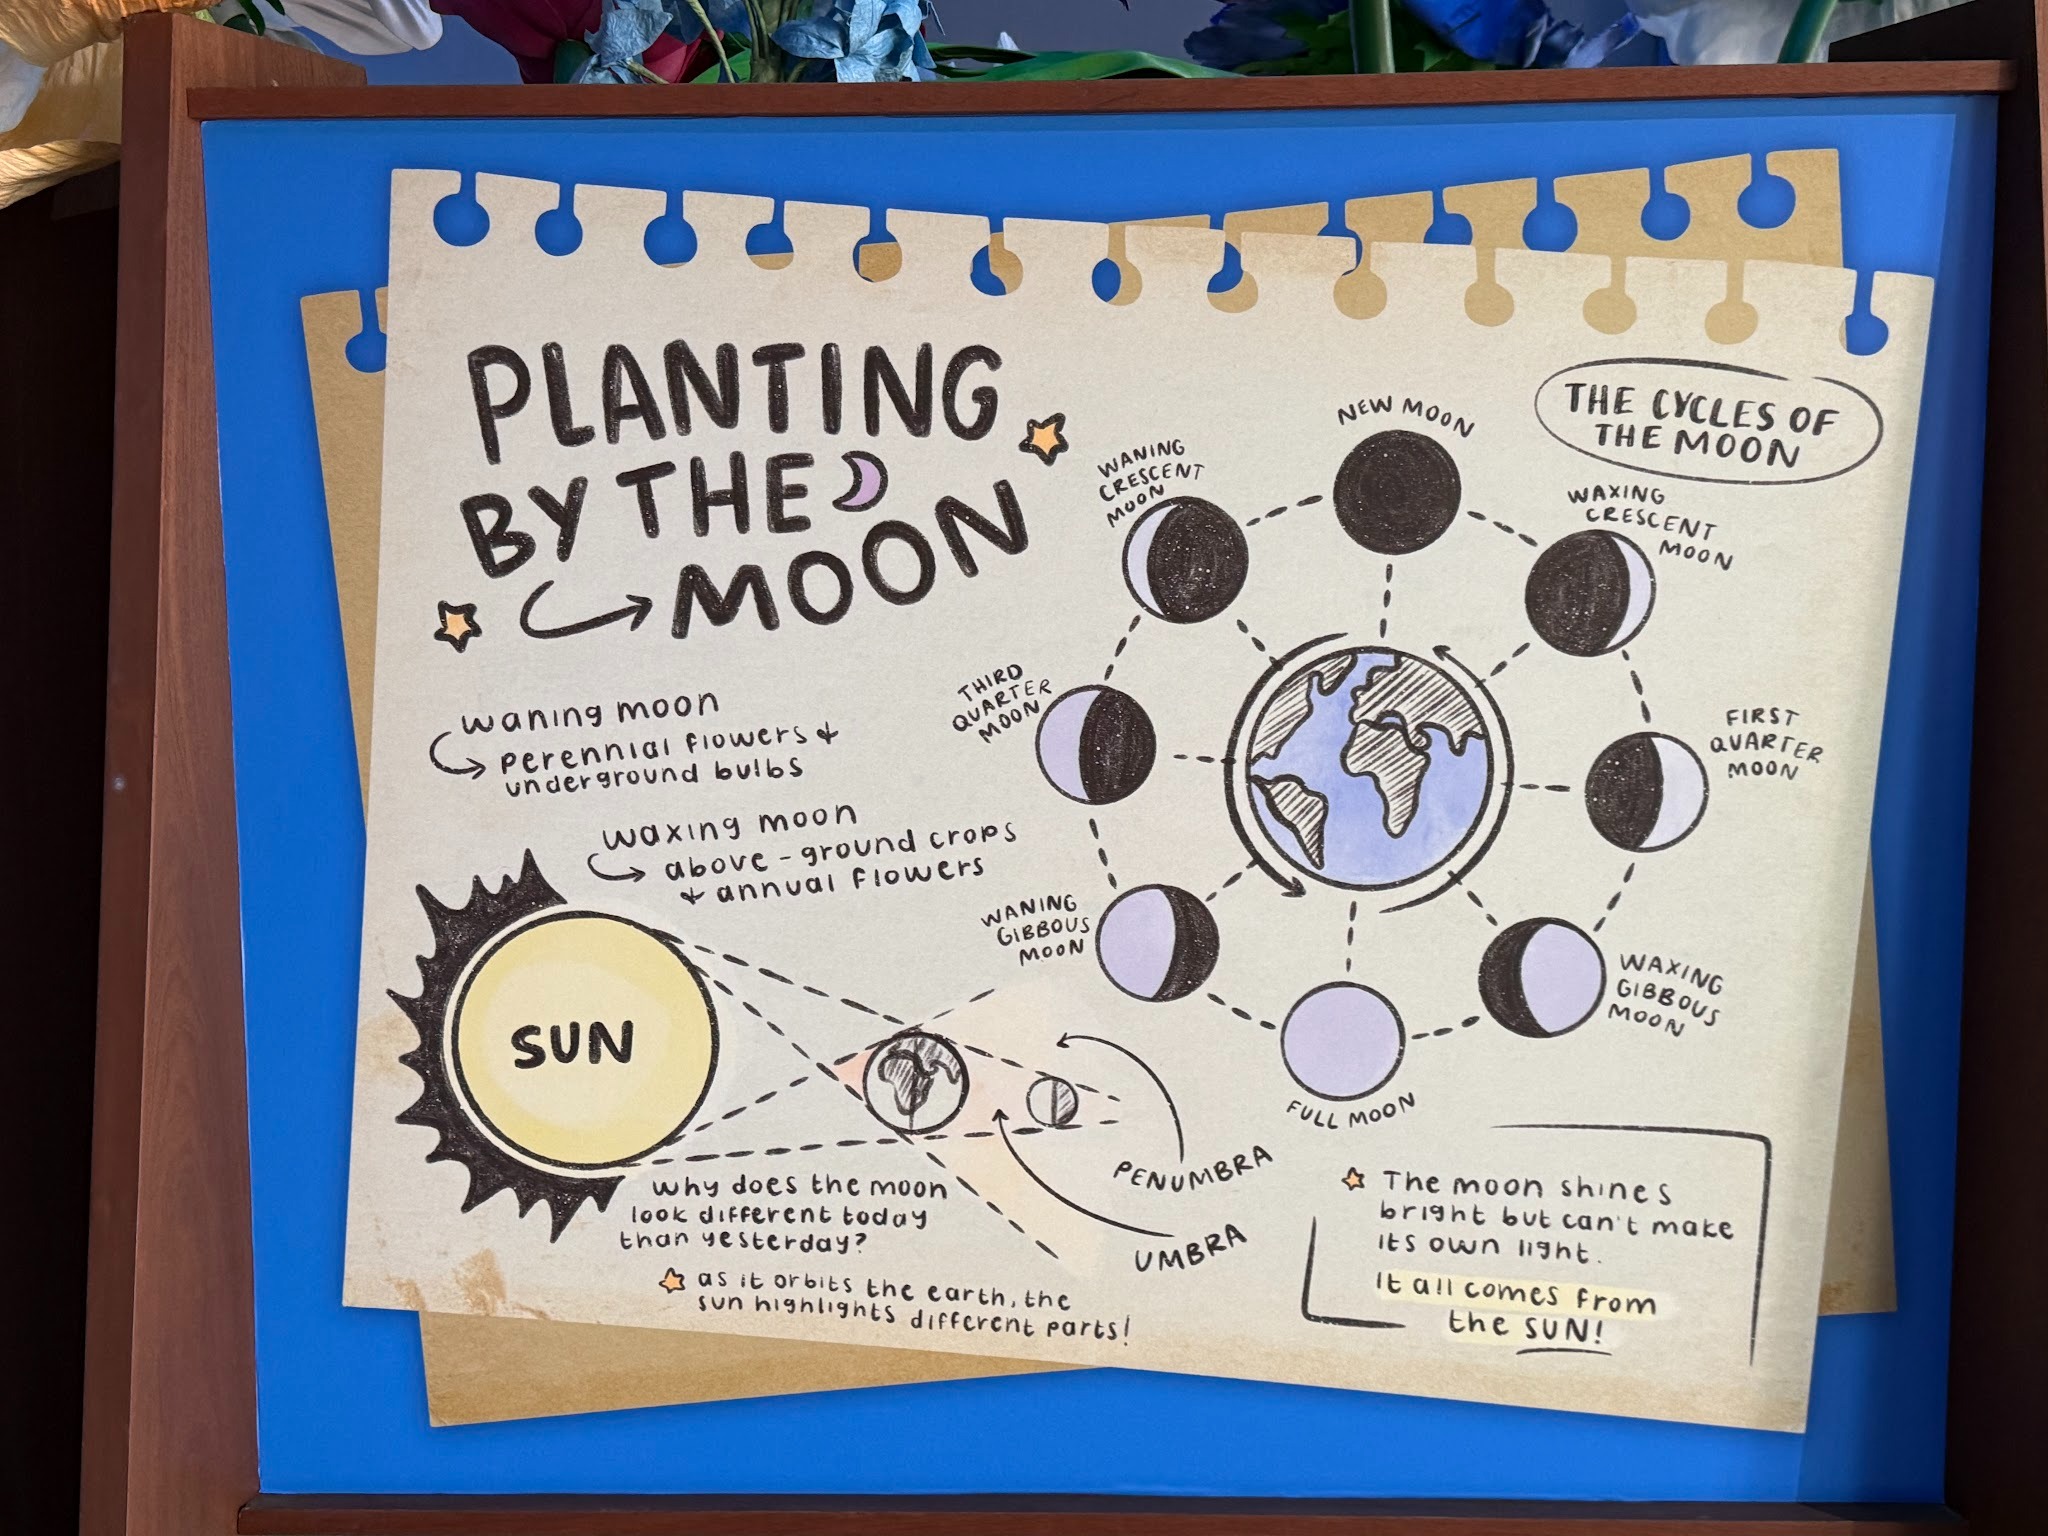 PLANTING
BY THE
MOON
waning moon
perennial flowers &
underground bulbs
waxing moon
above-ground crops
& annual flowers
SUN
why does the moon
look different today
than yesterday?
as it orbits the earth, the
sun highlights different parts!
PENUMBRA
UMBRA
THE CYCLES OF
THE MOON
NEW MOON
WAXING
CRESCENT
MOON
FIRST
QUARTER
MOON
WAXING
GIBBOUS
MOON
FULL MOON
WANING
GIBBOUS
MOON
THIRD
QUARTER
MOON
WANING
CRESCENT
MOON
The moon shines
bright but can't make
its own light.
It all comes from
the SUN!